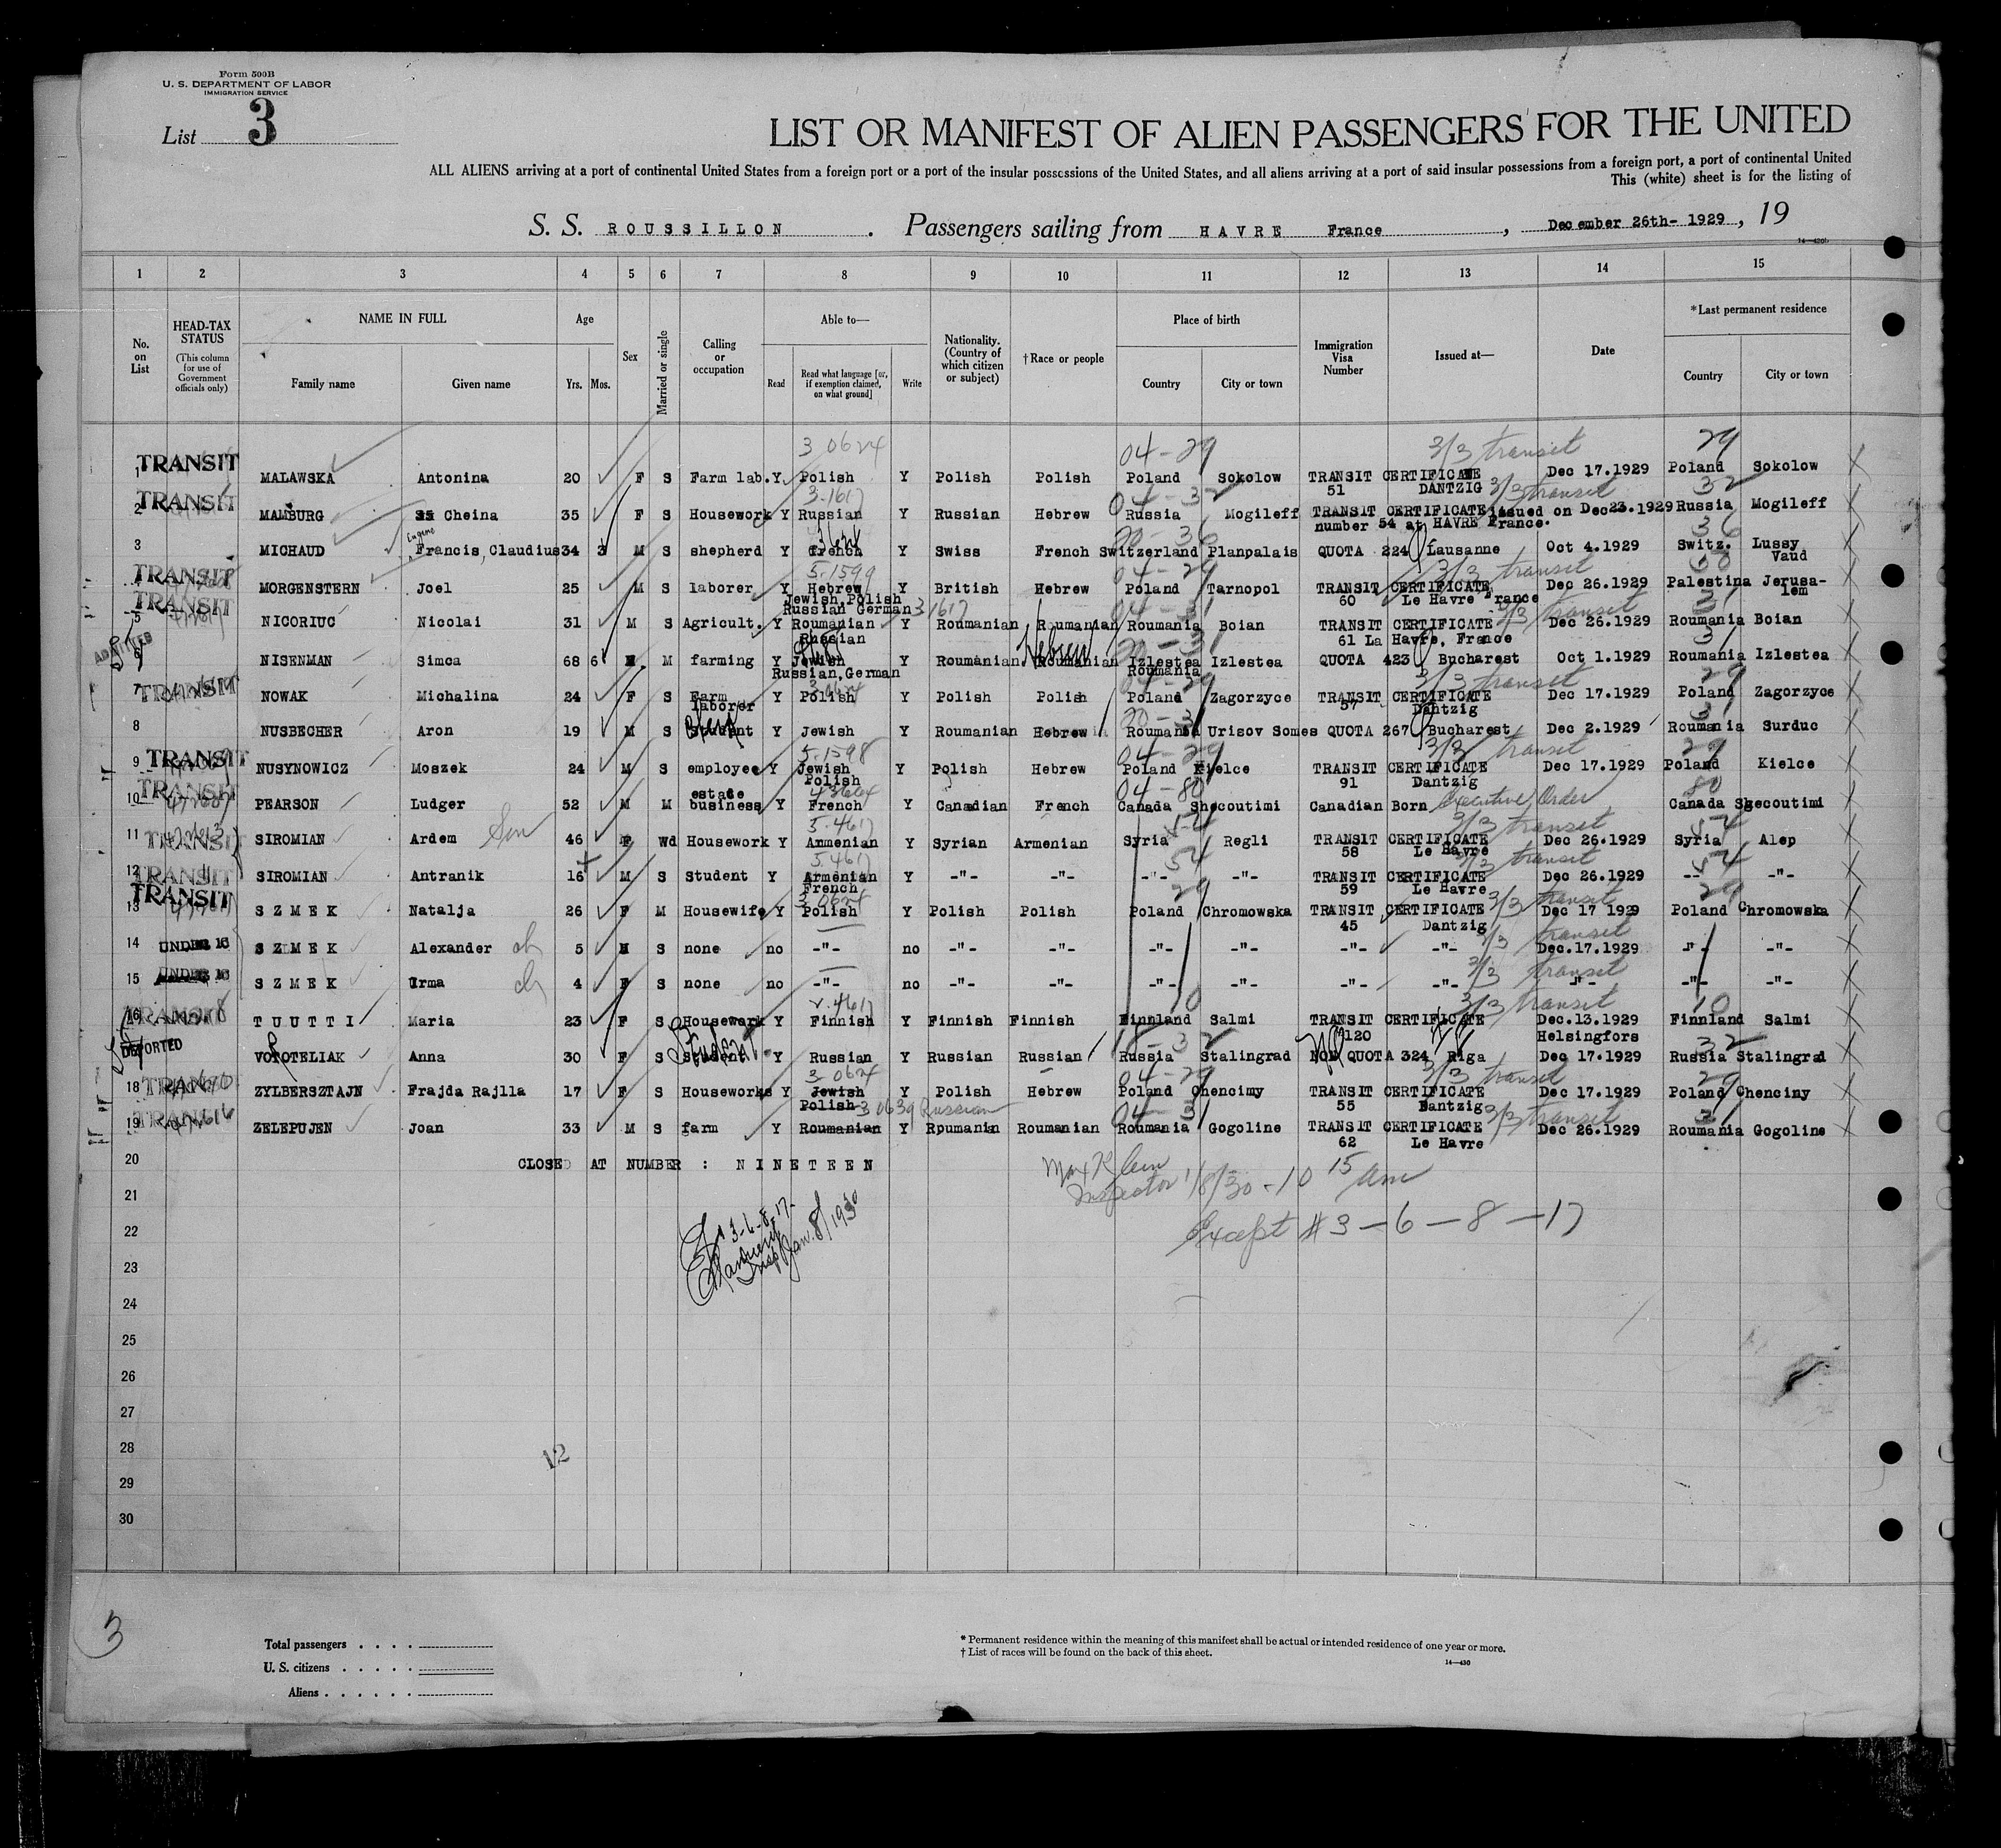 Form 500B
U. S. DEPARTMENT OF LABOR
IMMIGRATION SERVICE
List 3
LIST OR MANIFEST OF ALIEN PASSENGERS FOR THE UNITED
ALL ALIENS arriving at a port of continental United States from a foreign port or a port of the insular possessions of the United States, and all aliens arriving at a port of said insular possessions from a foreign port, a port of continental United
This (white) sheet is for the listing of
S. S. ROUSSILLON . Passengers sailing from HAVRE France , December 26th- 1929 , 19
1 2 3 4 5 6 7 8 9 10 11 12 13 14 15
No. on List
HEAD-TAX STATUS
(This column for use of Government officials only)
NAME IN FULL
Family name Given name
Age
Yrs. Mos.
Sex
Married or single
Calling or occupation
Able to—
Read
Read what language [or, if exemption claimed, on what ground]
Write
Nationality. (Country of which citizen or subject)
†Race or people
Place of birth
Country City or town
Immigration Visa Number
Issued at—
Date
*Last permanent residence
Country City or town
3 0624 04-29 3/3 transit 29
TRANSIT
1 MALAWSKA Antonina 20 F S Farm lab. Y Polish Y Polish Polish Poland Sokolow TRANSIT CERTIFICATE Dec 17.1929 Poland Sokolow
51 DANTZIG
TRANSIT 3.1617 04-32 3/3 transit 32
2 MAMBURG Cheina 35 F S Housework Y Russian Y Russian Hebrew Russia Mogileff TRANSIT CERTIFICATE issued on Dec23.1929 Russia Mogileff
number 54 at HAVRE France.
Eugene 20-36 36
3 MICHAUD Francis,Claudius 34 3 M S shepherd Y French Y Swiss French Switzerland Planpalais QUOTA 224 Lausanne Oct 4.1929 Switz. Lussy
Vaud
TRANSIT 5.1599 04-29 3/3 transit
4 MORGENSTERN Joel 25 M S laborer Y Hebrew Y British Hebrew Poland Tarnopol TRANSIT CERTIFICATE Dec 26.1929 Palestina Jerusa-
lem
Jewish,Polish 60 Le Havre France
Russian German 3 1617 3/3 transit
TRANSIT
5 NICORIUC Nicolai 31 M S Agricult. Y Roumanian Y Roumanian Roumanian Roumania Boian TRANSIT CERTIFICATE Dec 26.1929 Roumania Boian
Russian 61 La Havre, France
ADMITTED Hebrew 20-31 31
6 NISENMAN Simca 68 6 M farming Y Jewish Y Roumanian Roumanian Izlestea Izlestea QUOTA 423 Bucharest Oct 1.1929 Roumania Izlestea
Russian,German Roumania
TRANSIT 3 0624 3/3 transit 29
7 NOWAK Michalina 24 F S Farm Y Polish Y Polish Polish Poland Zagorzyce TRANSIT CERTIFICATE Dec 17.1929 Poland Zagorzyce
laborer 57 Dantzig
20-31 31
8 NUSBECHER Aron 19 M S Student Y Jewish Y Roumanian Hebrew Roumania Urisov Somes QUOTA 267 Bucharest Dec 2.1929 Roumania Surduc
TRANSIT 5.1598 04-29 3/3 transit 29
9 NUSYNOWICZ Moszek 24 M S employee Y Jewish Y Polish Hebrew Poland Kielce TRANSIT CERTIFICATE Dec 17.1929 Poland Kielce
Polish 91 Dantzig
TRANSIT estate 04-80 80
10 PEARSON Ludger 52 M M business Y French Y Canadian French Canada Shecoutimi Canadian Born Executive Order Canada Shecoutimi
TRANSIT 5.4617 3/3 transit
11 SIROMIAN Ardem Son 46 F Wd Housework Y Armenian Y Syrian Armenian Syria Regli TRANSIT CERTIFICATE Dec 26.1929 Syria Alep
58 Le Havre
TRANSIT 5.4617 54 3/3 transit
12 SIROMIAN Antranik 16 M S Student Y Armenian Y -"- -"- -"- -"- TRANSIT CERTIFICATE Dec 26.1929 -"- -"-
French 59 Le Havre
TRANSIT 3 0624 29 3/3 transit 29
13 SZMEK Natalja 26 F M Housewife Y Polish Y Polish Polish Poland Chromowska TRANSIT CERTIFICATE Dec 17 1929 Poland Chromowska
45 Dantzig
3/3 transit
14 UNDER 16 SZMEK Alexander ch 5 M S none no -"- no -"- -"- -"- -"- -"- -"- Dec.17.1929 -"- -"-
3/3 transit
15 UNDER 16 SZMEK Irma ch 4 F S none no -"- no -"- -"- -"- -"- -"- -"- -"- -"- -"-
4617 10 3/3 transit 10
16 TUUTTI Maria 23 F S Housework Y Finnish Y Finnish Finnish Finnland Salmi TRANSIT CERTIFICATE Dec.13.1929 Finnland Salmi
120 Helsingfors
DEPORTED Student 32
VOROTELIAK Anna 30 F S Student Y Russian Y Russian Russian Russia Stalingrad NON QUOTA 324 Riga Dec 17.1929 Russia Stalingrad
TRANSIT 3 0624 04-29 3/3 transit 29
18 ZYLBERSZTAJN Frajda Rajlla 17 F S Houseworks Y Jewish Y Polish Hebrew Poland Chencimy TRANSIT CERTIFICATE Dec 17.1929 Poland Chenciny
Polish 3 0639 Russian 55 Dantzig
TRANSIT 04-31 3/3 transit 31
19 ZELEPUJEN Joan 33 M S farm Y Roumanian Y Roumania Roumanian Roumania Gogoline TRANSIT CERTIFICATE Dec 26.1929 Roumania Gogoline
62 Le Havre
20 CLOSED AT NUMBER : NINETEEN
Max Klein
Inspector 1/8/30 - 10 15 am
21
22 Except # 3 - 6 - 8 - 17
3-6-8-17-
Insp Jan. 8/1930
23
24
25
26
27
28
12
29
30
3
Total passengers . . . .
U. S. citizens . . . . .
Aliens . . . . . .
* Permanent residence within the meaning of this manifest shall be actual or intended residence of one year or more.
† List of races will be found on the back of this sheet.
14—430